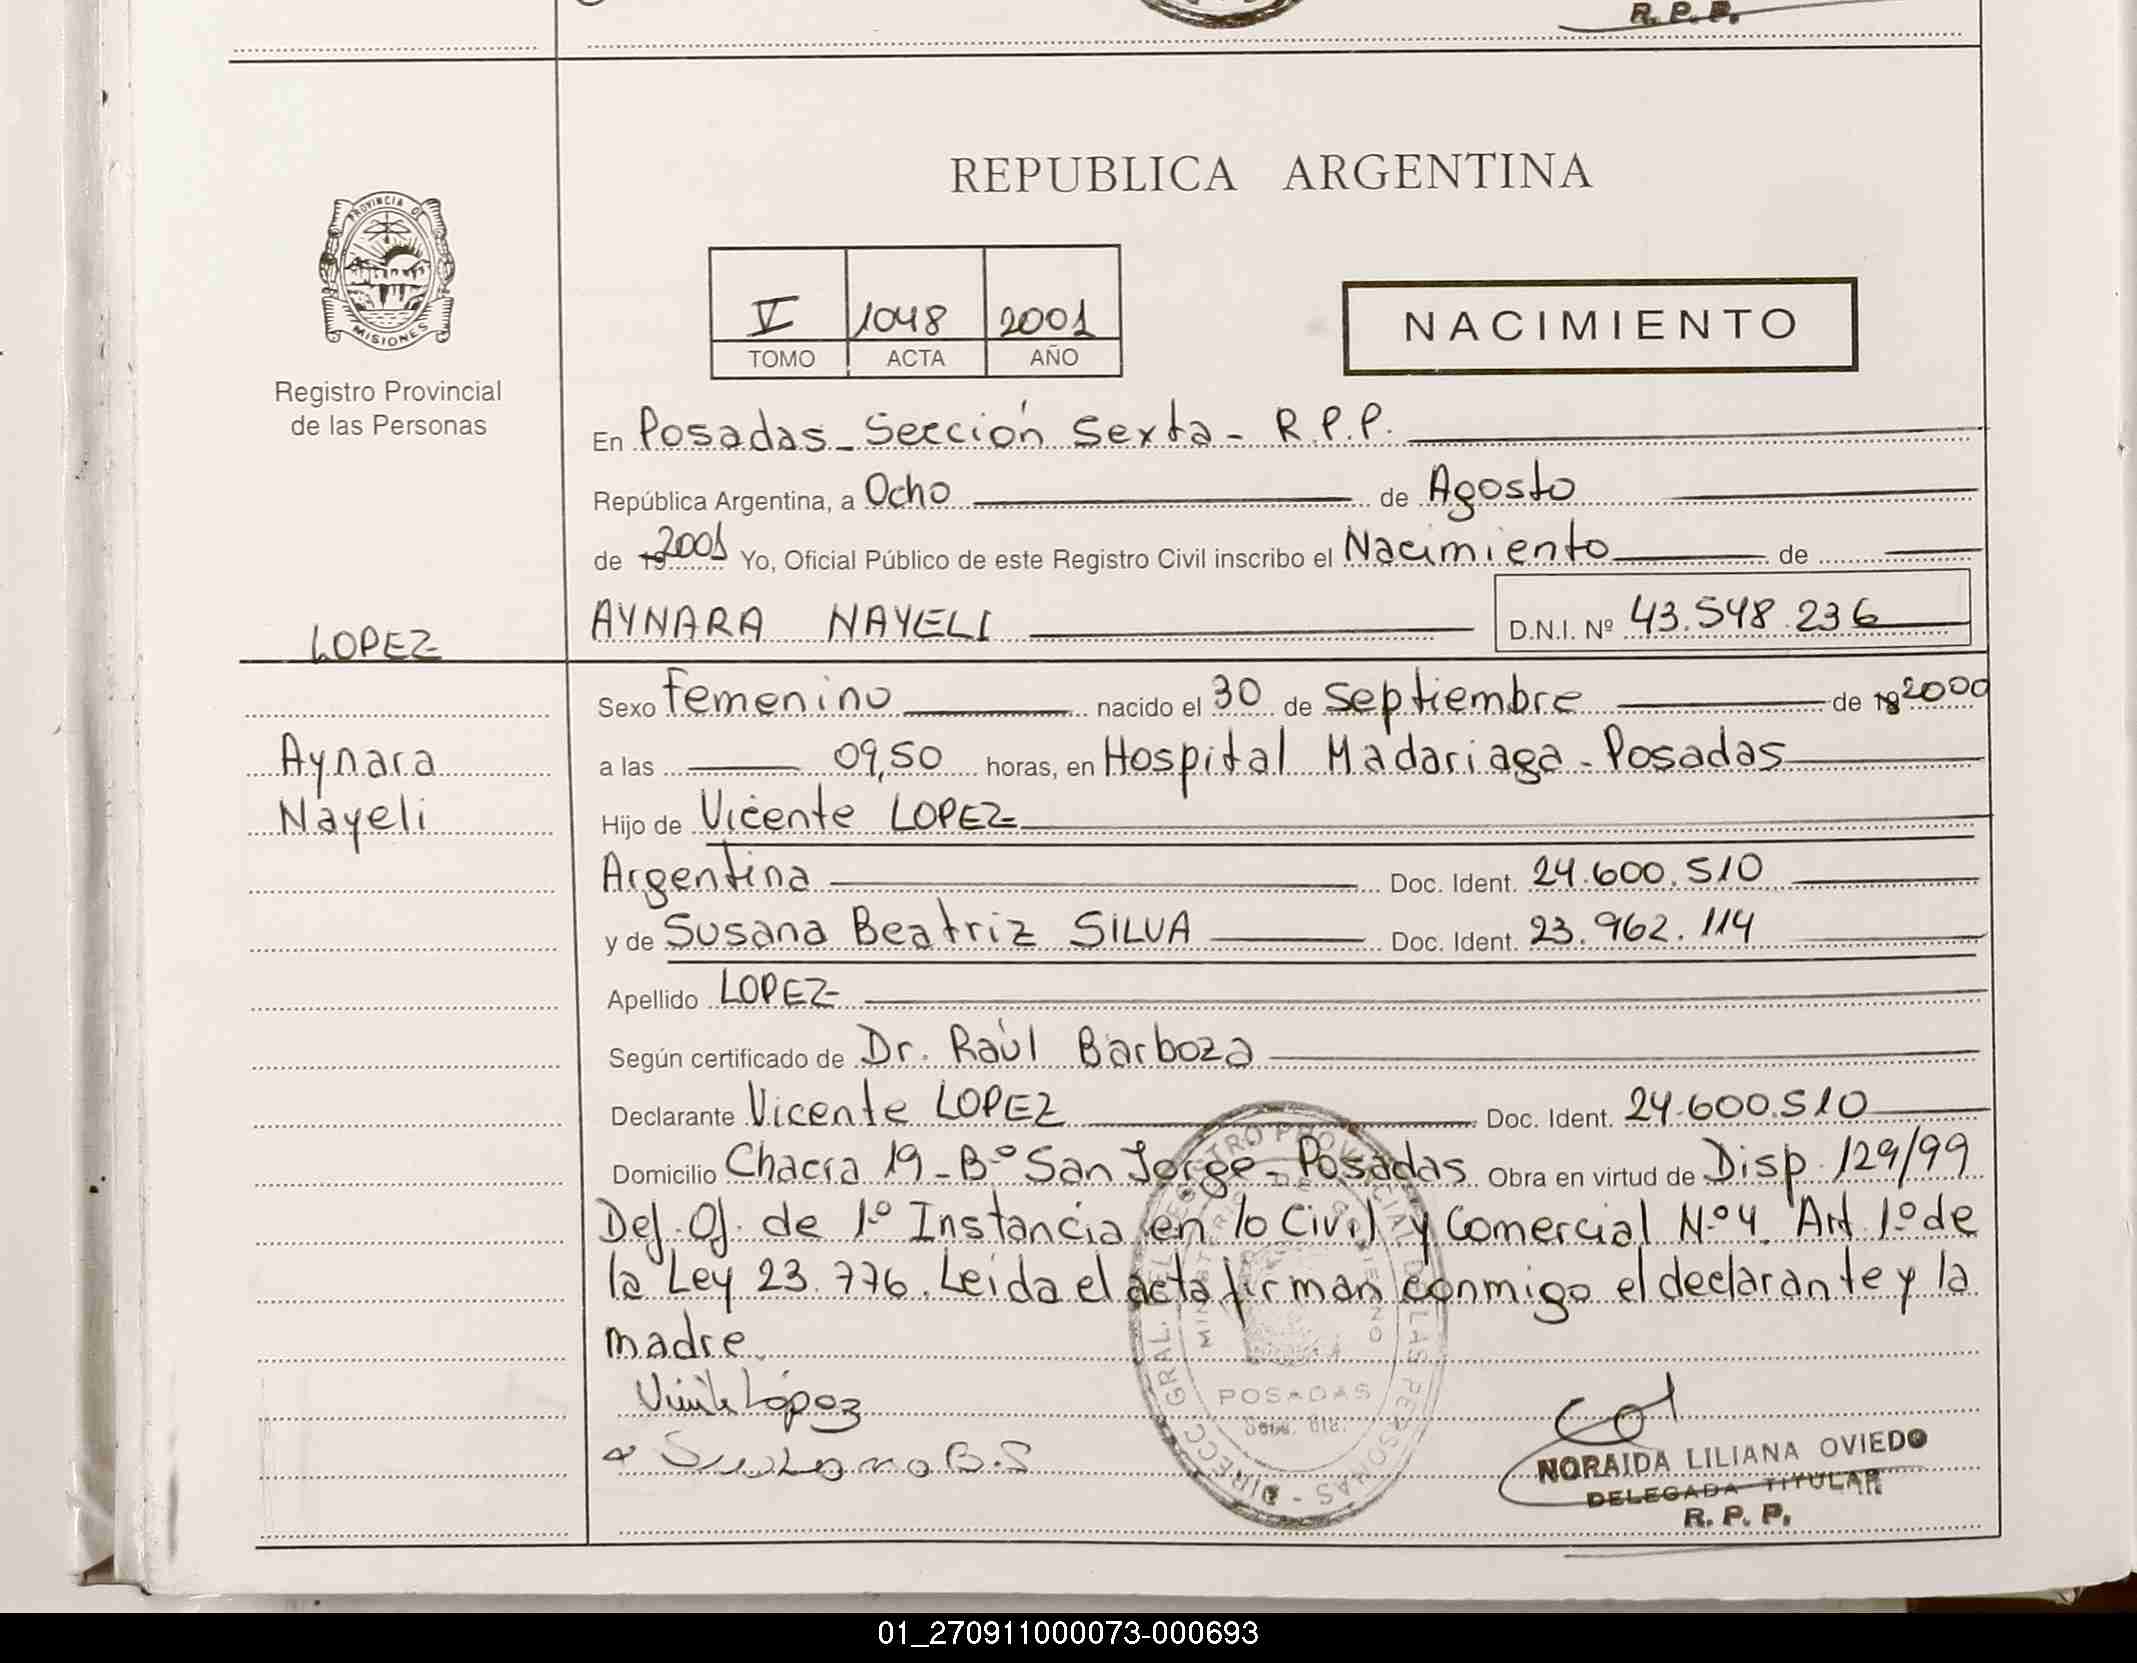 R. P. P.
REPUBLICA ARGENTINA
PROVINCIA DE
MISIONES
Registro Provincial
de las Personas
V 1048 2001
TOMO ACTA AÑO
NACIMIENTO
En Posadas - Sección Sexta - R.P.P.
República Argentina, a Ocho de Agosto
de 19 2001 Yo, Oficial Público de este Registro Civil inscribo el Nacimiento de
LOPEZ
AYNARA NAYELI D.N.I. Nº 43.548.236
Sexo femenino nacido el 30 de septiembre de 2000
Aynara
a las 09,50 horas, en Hospital Madariaga - Posadas
Nayeli
Hijo de Vicente LOPEZ
Argentina Doc. Ident. 24.600.510
y de Susana Beatriz SILVA Doc. Ident. 23.962.114
Apellido LOPEZ
Según certificado de Dr. Raúl Barboza
Declarante Vicente LOPEZ Doc. Ident. 24.600.510
Domicilio Chacra 19 - Bº San Jorge - Posadas Obra en virtud de Disp. 129/99
Def. Of. de 1º Instancia en lo Civil y Comercial Nº 4. Art. 1º de
la Ley 23.776. Leida el acta firman conmigo el declarante y la
madre.
López
B.S
DIRECC. GRAL. DEL REGISTRO PROVINCIAL DE LAS PERSONAS
MINISTERIO DE GOBIERNO
POSADAS
NORAIDA LILIANA OVIEDO
DELEGADA TITULAR
R. P. P.
01_270911000073-000693